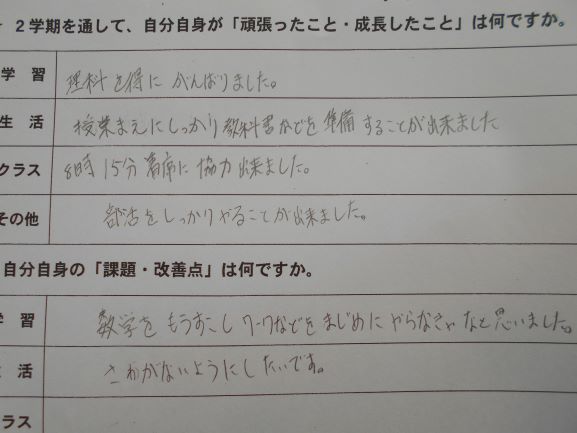 2学期を通して、自分自身が「頑張ったこと・成長したこと」は何ですか。
学 習 理科を得に がんばりました。
生 活 授業まえにしっかり教科書などを準備することが出来ました
クラス 8時15分着席に協力出来ました。
その他 部活をしっかりやることが出来ました。
自分自身の「課題・改善点」は何ですか。
学 習 数学をもうすこしワークなどをまじめにやらなきゃなと思いました。
活 さわがないようにしたいです。
ラス